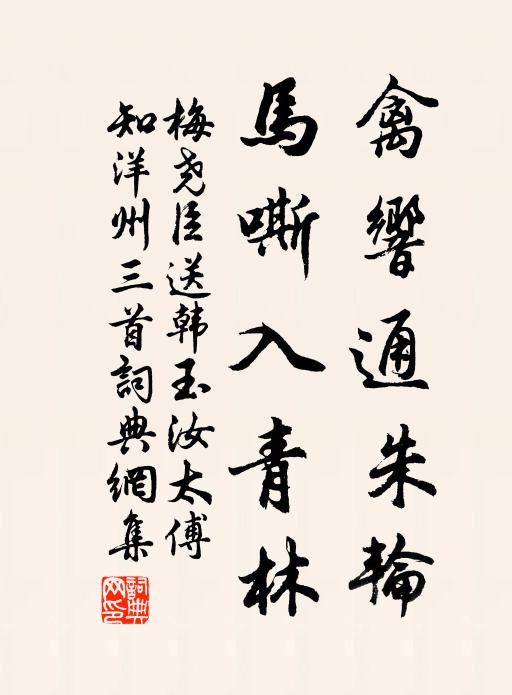 禽響通朱輪
馬嘶入青林
梅尧臣送韩玉汝太傅
知洋州三首詞典網集
詞典網印